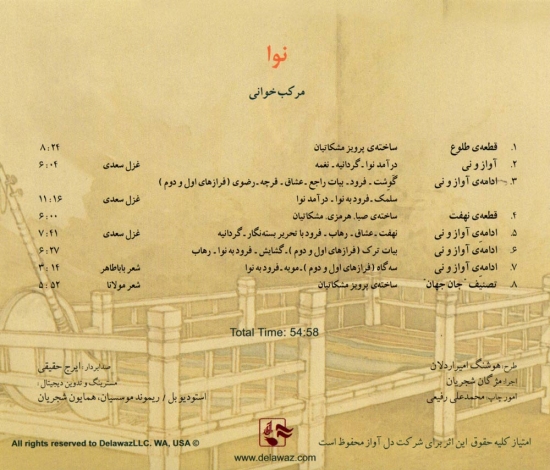 نوا
مرکب‌خوانی
۱. قطعه‌ی طلوع ساخته‌ی پرویز مشکاتیان ۸:۲۴
۲. آواز و نی درآمد نوا ـ گردانیه ـ نغمه غزل سعدی ۶:۰۴
۳. ادامه‌ی آواز و نی گوشت ـ فرود ـ بیات راجع ـ عشاق ـ قرچه ـ رضوی ( فرازهای اول و دوم )
سلمک ـ فرود به نوا ـ درآمد نوا غزل سعدی ۱۱:۱۶
۴. قطعه‌ی نهفت ساخته‌ی صبا، هرمزی، مشکاتیان ۶:۰۰
۵. ادامه‌ی آواز و نی نهفت ـ عشاق ـ رهاب ـ فرود با تحریر بسته‌نگار ـ گردانیه غزل سعدی ۷:۴۱
۶. ادامه‌ی آواز و نی بیات ترک ( فرازهای اول و دوم ) ـ گشایش ـ فرود به نوا ـ رهاب ۶:۲۷
۷. ادامه‌ی آواز و نی سه‌گاه ( فرازهای اول و دوم ) ـ مویه ـ فرود به نوا شعر باباطاهر ۳:۱۴
۸. تصنیف "جان جهان" ساخته‌ی پرویز مشکاتیان شعر مولانا ۵:۵۲
Total Time: 54:58
طرح: هوشنگ امیراردلان
اجرا: مژگان شجریان
امور چاپ: محمدعلی رفیعی
صدابردار: ایرج حقیقی
مسترینگ و تدوین دیجیتال:
استودیو بل / ریموند موسسیان، همایون شجریان
امتیاز کلیه حقوق این اثر برای شرکت دل آواز محفوظ است
All rights reserved to DelawazLLC. WA, USA ©
www.delawaz.com